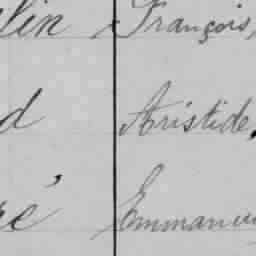 lin François,
d Aristide,
ré Emmanu